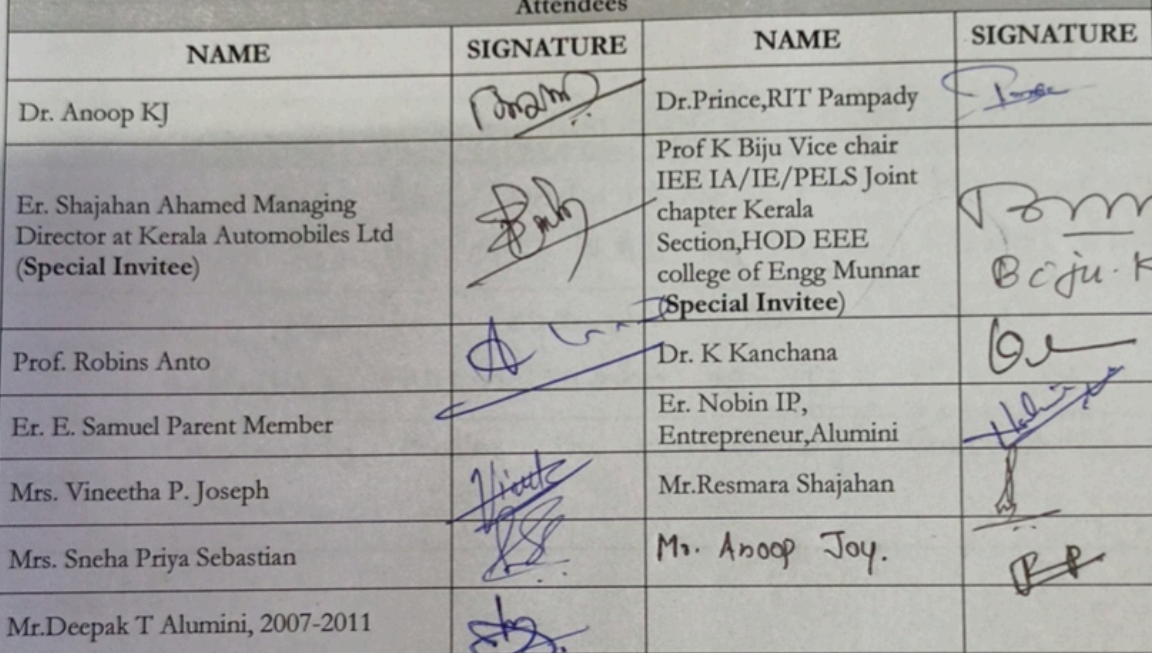 Attendees
NAME SIGNATURE NAME SIGNATURE
Dr. Anoop KJ
Dr.Prince,RIT Pampady
Er. Shajahan Ahamed Managing
Director at Kerala Automobiles Ltd
(Special Invitee)
Prof K Biju Vice chair
IEE IA/IE/PELS Joint
chapter Kerala
Section,HOD EEE
college of Engg Munnar
(Special Invitee)
Biju. K
Prof. Robins Anto
Dr. K Kanchana
Er. E. Samuel Parent Member
Er. Nobin IP,
Entrepreneur,Alumini
Mrs. Vineetha P. Joseph
Mr.Resmara Shajahan
Mrs. Sneha Priya Sebastian
Mr. Anoop Joy.
Mr.Deepak T Alumini, 2007-2011